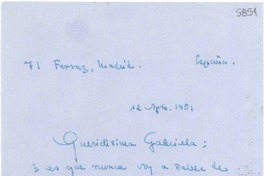 5851
71 Ferraz, Madrid. España.
12 Agto. 1951
Queridísima Gabriela:
¿es que nunca voy a saber de